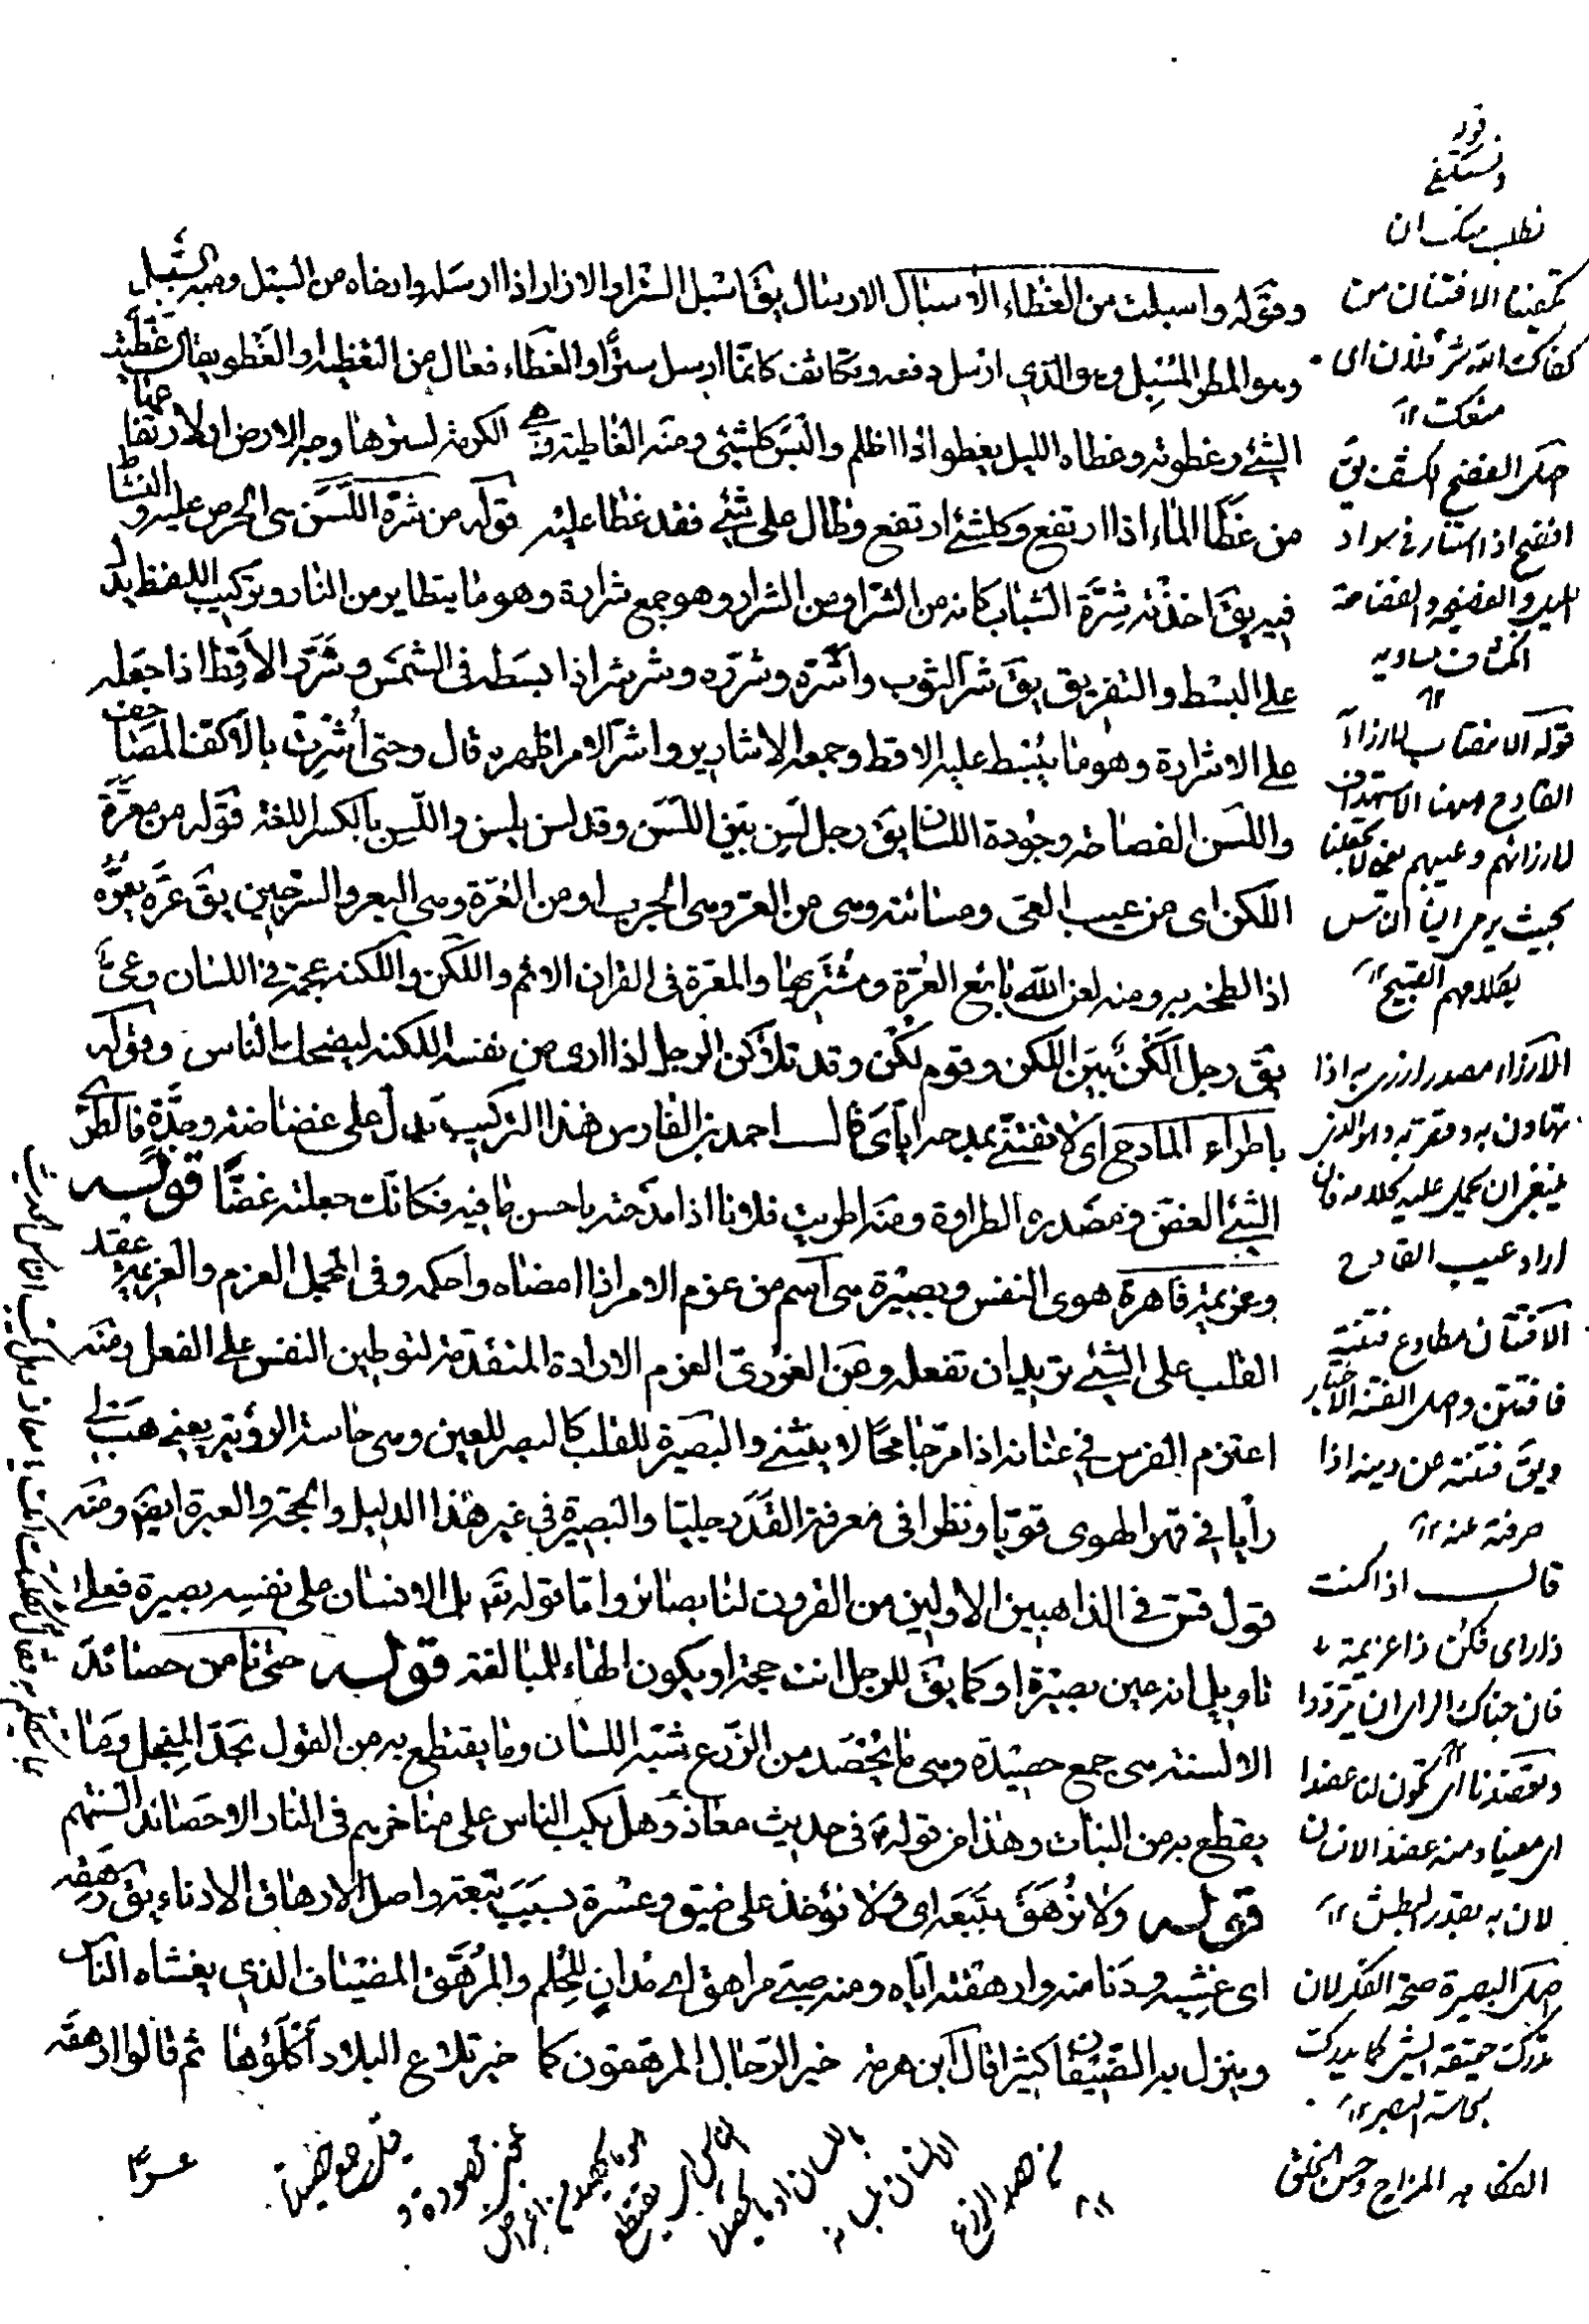 وقوله واسبلت من الغطاء الاسبال الارسال يقَ اسبل الستر او الازار اذا ارسله وارخاه من السبل ومنه السَّبل
وهو المطر المُسْبِل وهو الذي ارسل دفعه وتكاثف كانما ارسل سترًا والغطاء فعال من التغطيه او الغطو يقال غَطَّيت
الشئ وغطوته وغطاه الليل يغطو اذا اظلم والبَس كلشئ ومنه الغاطية وهي الكرمة لسترها وجه الارض او لارتفاعها
من غطا الماء اذا ارتفع وكلشئ ارتفع وطال على شئ فقد غطا عليه قوله من شرّة اللَّسَن هى الحرص عليه والنشاط
فيه يقَ اخذته شِرَّة الشباب كانه من الشرّ او من الشرار وهو جمع شرارة وهو ما يتطاير من النار وتركيب اللفظ يدل
على البسْط والتفريق يقَ شرّ الثوب واشرّه وشرّره وشرشر اذا بسَطه فى الشمس وشَرَّر الاَقِط اذا جعله
على الاشرارة وهو ما يُبْسط عليه الاقط وجمعه الاشارير واشرّ الامر اظهره قال وحتى اُشرّت بالاكفّ المصاحف
واللسَن الفصاحة وجودة اللسان يقَ رجل لَسِن بيّن اللسَن وقد لسن يلسن واللّسِن بالكسر اللغة قوله من معرّة
اللكن اى من عيب العى ومسائته وهى من العرّ وهى الجرب او من العُرّة وهى البعر والسرجين يقَ عَرَّه يعرّه
اذا لطخه به ومنه لعن اللّه بائع العُرّة ومشتريها والمعرّة فى القران الاثم واللكن واللكنة عجمة فى اللسان وعىّ
يقَ رجل اَلْكَن بيّن اللكن وقوم لُكْن وقد تلاكن الرجل اذا ارى من نفسه اللكنة ليضحك الناس وقوله
باطراء المادح اى لا تفتنّى بمدحه اياى قال احمد بن الفارس هذا التركيب يدل على غضاضة وجِدّة فالطرىّ
الشئ الغضّ ومصدره الطراوة ومنه اطريت فلانا اذا مدحته باحسن ما فيه فكانك جعلته غضًّا قوله
وعزيمة قاهرة هوى النفس وبصيرة هى اسم من عزم الامر اذا امضاه واحكمه وفى المجمل العزم والعزيمة عقد
القلب على الشئ تريد ان تفعله وعن الغورىّ العزم الارادة المتقدّمة لتوطين النفس على الفعل ومنه
اعتزم الفرس في عنانه اذا مرّ جامحًا لا ينثنى والبصيرة للقلب كالبصر للعين وهى حاسة الرؤية يعنى هَب لى
رأيا في قهر الهوى قويّا ونظرا فى معرفة القَدَر جليّا والبصيرة في غير هذا الدليل والحجة والعبرة ايضًا ومنه
قول قس في الذاهبين الاولين من القرون لنا بصائر واما قوله تعَ بل الانسان على نفسه بصيرة فعلى
تاويل انه عين بصيرة او كما يقَ للرجل انت حجة او يكون الهاء للمبالغة قوله حتى نامن حصائد
الالسنة هى جمع حصيدة وهى ما يُحْصَد من الزرع شبّه اللسان وما يقتطع به من القول بحدّ المِنجل وما
يقطع به من النبات وهذا من قوله فى حديث معاذ وهل يكب الناس على مناخرهم فى النار الا حصائد السنتهم
قوله ولا نُرهَق بتَبَعَة اى لا نؤخذ على ضيق وعسرة بسبب تبعة واصل الارهاق الادناء يقَ رَهِقه
اى غَشِيه ودنا منه وارهقته اياه ومنه صبى مراهق اى مُدانٍ للحُلم والمرهَّق المضياف الذي يغشاه الناس
وينزل به الضيفان كثيرا قال ابن هرمه خير الرجال المرهقون كما خير تلاع البلاد أكلؤها ثم قالوا ارهقه
قوله
ونستكفى
نطلب منك ان
تكفينا الافتنان من
كفاك اللّه شر فلان اى
منعك
اصل الفضح الكشف يقَ
افضح اذا استنار فى سواد
قوله الانتصاب لازراء
القادح
لازرائهم وعيبهم
بحيث يرمى الينا الناس
بكلامهم القبيح
الازراء مصدر ازرى به اذا
تهاون به
اراد عيب القادح
الافتتان مطاوع فتنته
فافتتن واصل الفتنة الاختبار
ويقَ فتنته عن دينه اذا
صرفته عنه
قال اذا كنت
ذا راى فكن ذا عزيمة
فان فساد الراى ان يترددا
وتعضدنا اى تكون لنا عضدا
اى معينا ومنه عضد الانسان
لان به يقدر البطش
اصل البصيرة صحة الفكر لان
يدرك حقيقة الشئ كما يدرك
بحاسة البصر
الفكاهة المزاح وحسن الخلق